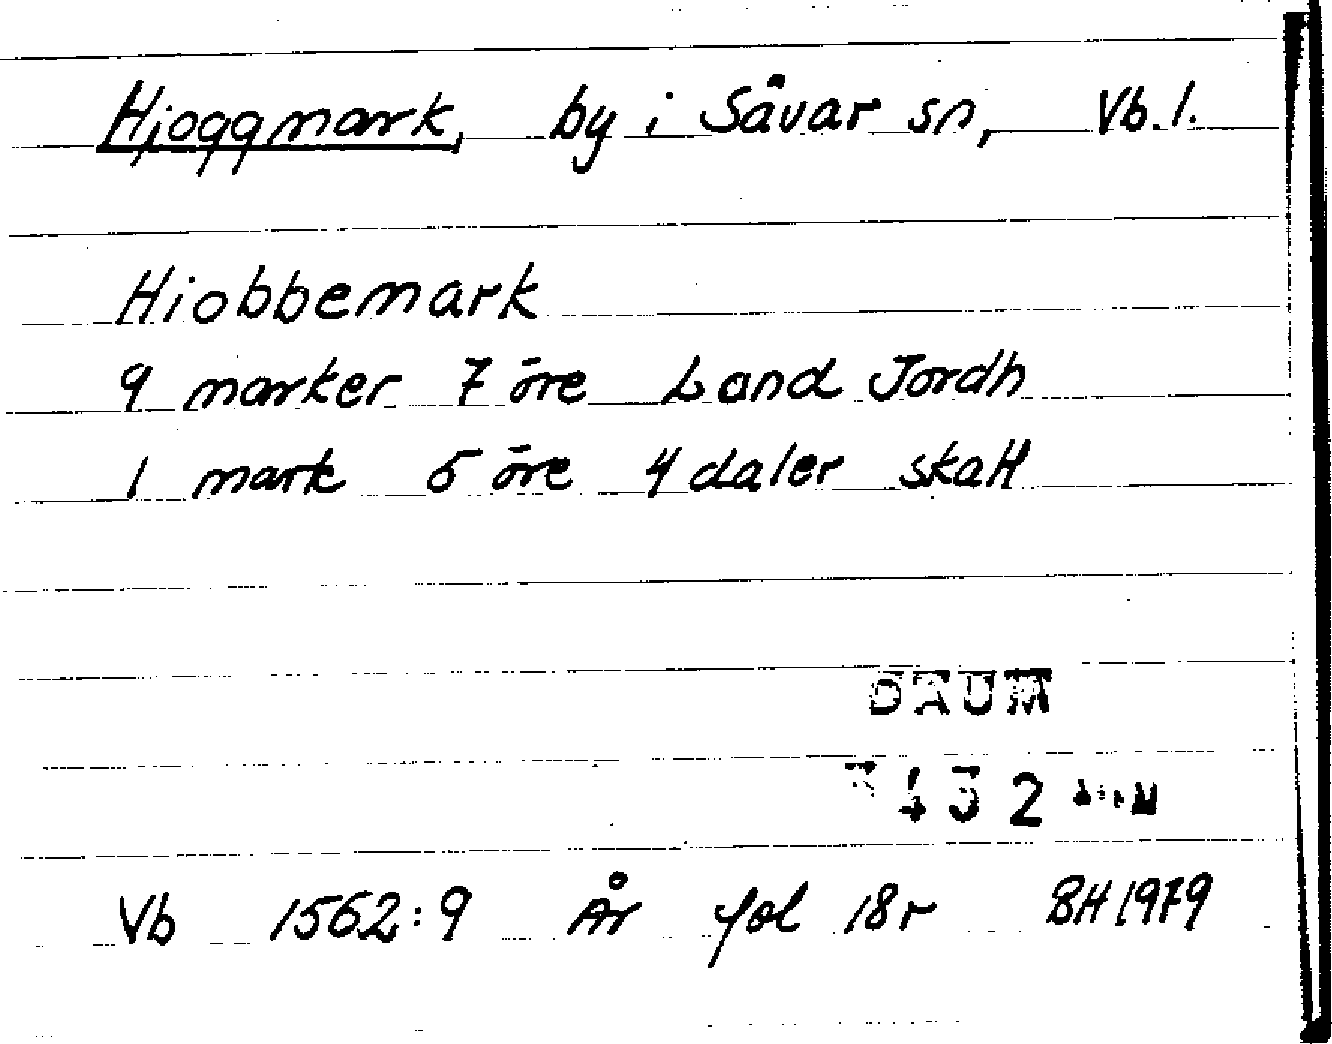 Hjoggmark, by i Sävar sn, Vb. l.
Hiobbemark
9 marker 7 öre Land Jordh
1 mark 5 öre 4 daler skatt
DAUM
Vb 1562:9 År fol 18r BH 1979